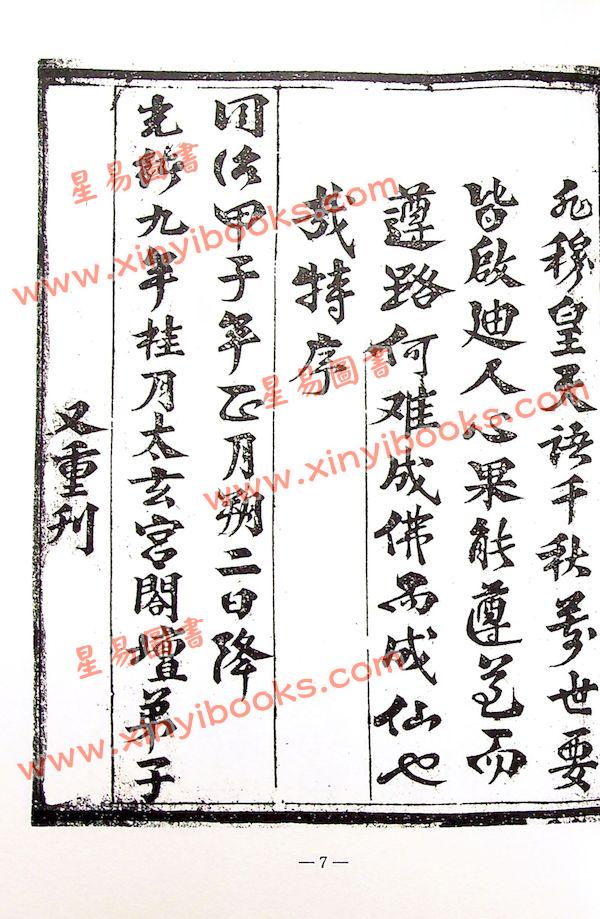 穆皇天語千秋萬世要
皆啟迪人心果能遵而
遵路何难成佛而成仙也
哉特序
同治甲子年正月朔二日降
光緒九年桂月太玄宮閤壇弟子
又重刊
—7—
星易圖書
www.xinyibooks.com
星易圖書
www.xinyibooks.com
星易圖書
www.xinyibooks.com